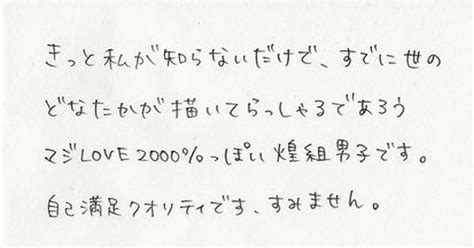 きっと私が知らないだけで、すでに世の
どなたかが描いてらっしゃるであろう
マジLOVE2000%っぽい煌組男子です。
自己満足クオリティです、すみません。